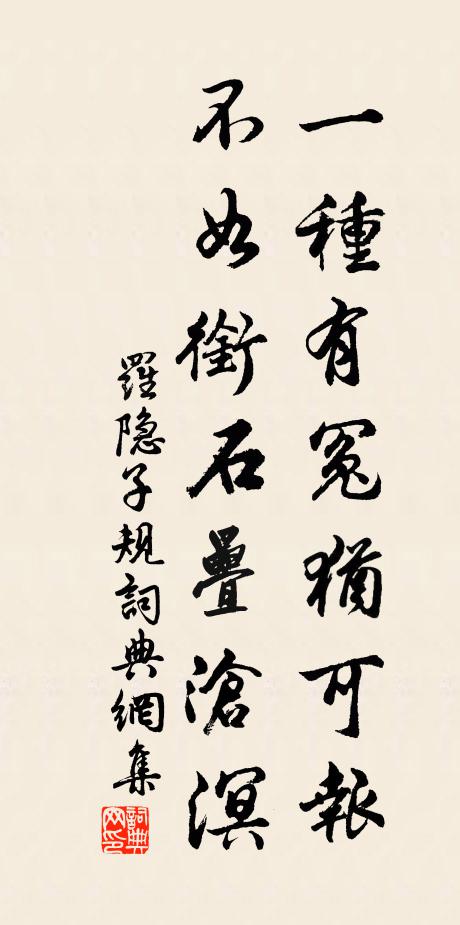 一種有冤猶可報
不如銜石疊滄溟
羅隐子規詞典網集
詞典网印